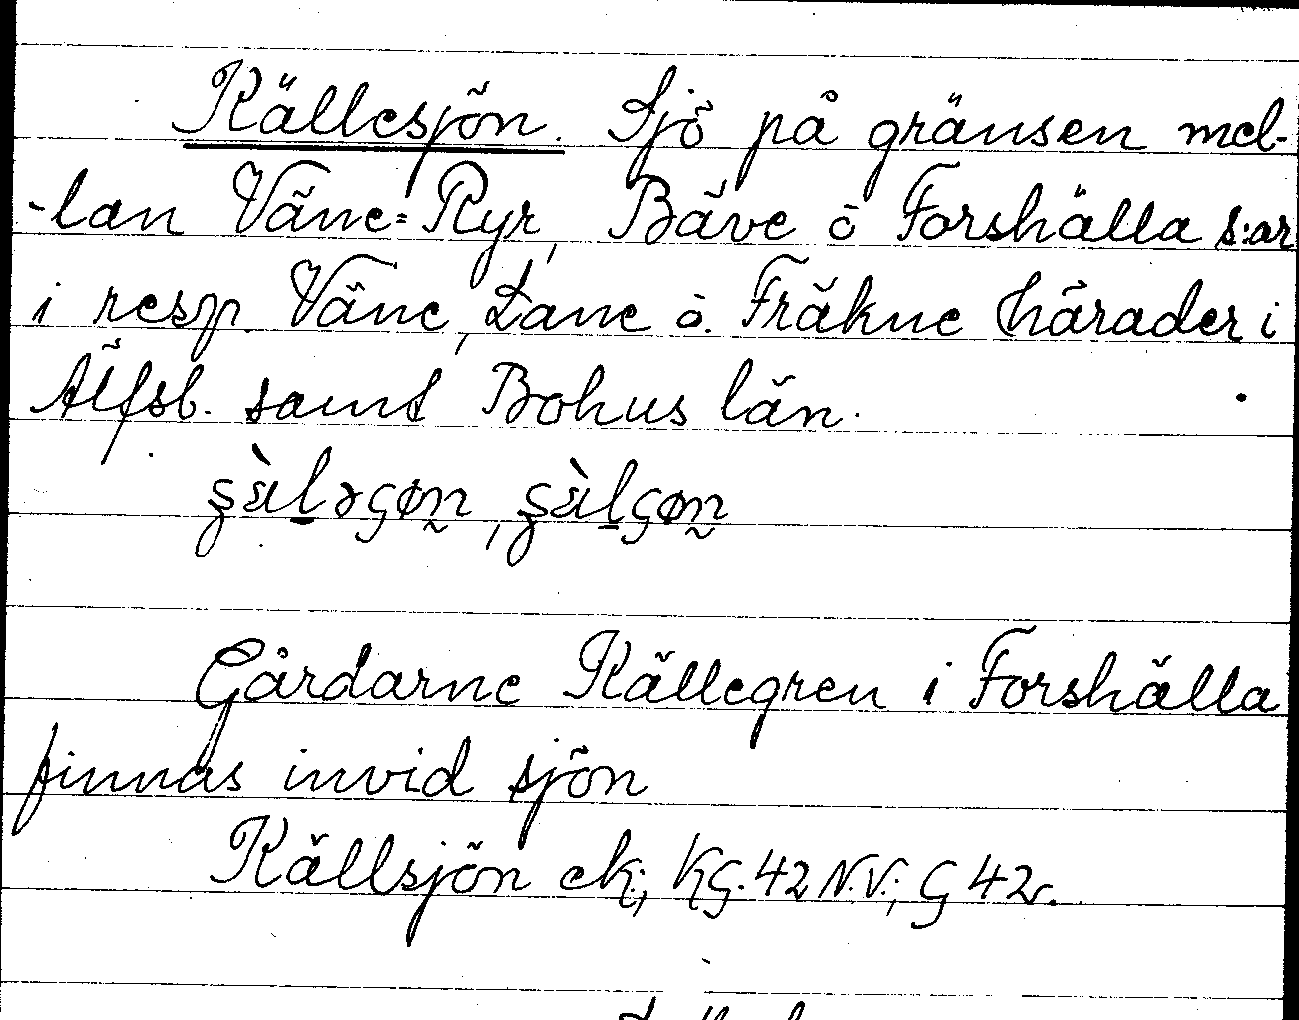 Källesjön. Sjö på gränsen mel-
-lan Väne=Ryr, Bäve o Forshälla s:ar
i resp. Väne, Lane o. Fräkne härader i
Älfsb. samt Bohus län.
Gårdarne Källegren i Forshälla
finnas invid sjön
Källsjön ek; KG. 42 N.V.; G 42.